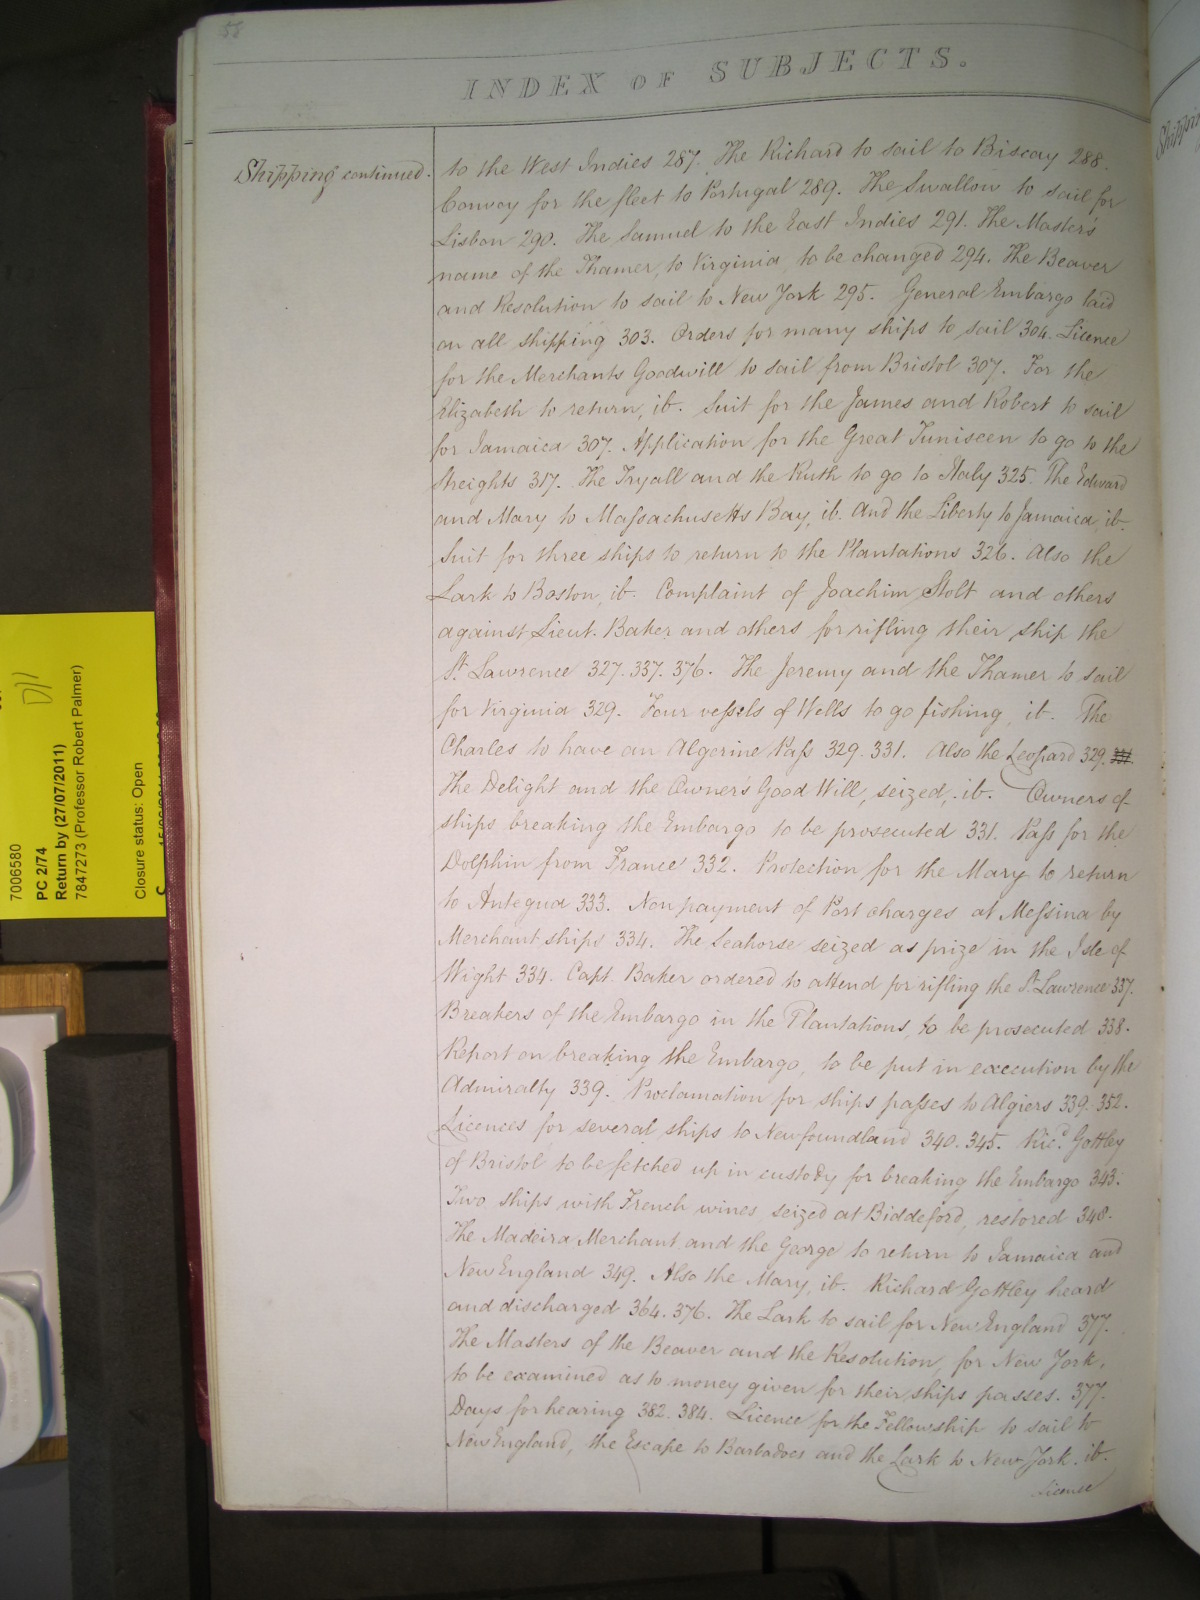 58
INDEX OF SUBJECTS.
Shipping continued.
to the West Indies 287. The Richard to sail to Biscay 288.
Convoy for the fleet to Portugal 289. The Swallow to sail for
Lisbon 290. The Samuel to the East Indies 291. The Master's
name of the Thamer, to Virginia, to be changed 294. The Beaver
and Resolution to sail to New York 295. General Embargo laid
on all shipping 303. Orders for many ships to sail 304. Licence
for the Merchants Goodwill to sail from Bristol 307. For the
Elizabeth to return, ib. Suit for the James and Robert to sail
for Jamaica 307. Application for the Great Tuniseen to go to the
Streights 317. The Tryall and the Ruth to go to Italy 325. The Edward
and Mary to Massachusetts Bay, ib. And the Liberty to Jamaica, ib.
Suit for three ships to return to the Plantations 326. Also the
Lark to Boston, ib. Complaint of Joachim Stolt and others
against Lieut. Baker and others for rifling their ship the
St. Lawrence 327. 337. 376. The Jeremy and the Thamer to sail
for Virginia 329. Four vessels of Wells to go fishing, ib. The
Charles to have an Algerine Pass 329. 331. Also the Leopard 329.
The Delight and the Owner's Good Will, seized, ib. Owners of
ships breaking the Embargo to be prosecuted 331. Pass for the
Dolphin from France 332. Protection for the Mary to return
to Antegua 333. Non payment of Port charges at Messina by
Merchant ships 334. The Seahorse seized as prize in the Isle of
Wight 334. Capt. Baker ordered to attend for rifling the St. Lawrence 337.
Breakers of the Embargo in the Plantations, to be prosecuted 338.
Report on breaking the Embargo, to be put in execution by the
Admiralty 339. Proclamation for ships passes to Algiers 339. 352.
Licences for several ships to Newfoundland 340. 345. Ricd. Gottley
of Bristol to be fetched up in custody for breaking the Embargo 343.
Two ships with French wines seized at Biddeford, restored 348.
The Madeira Merchant and the George to return to Jamaica and
New England 349. Also the Mary, ib. Richard Gottley heard
and discharged 364. 376. The Lark to sail for New England 377.
The Masters of the Beaver and the Resolution, for New York,
to be examined as to money given for their ships passes. 377.
Days for hearing 382. 384. Licence for the Fellowship to sail to
New England, the Escape to Barbadoes and the Lark to New York. ib.
License
Shipping
7006580
PC 2/74
Return by (27/07/2011)
7847273 (Professor Robert Palmer)
Closure status: Open